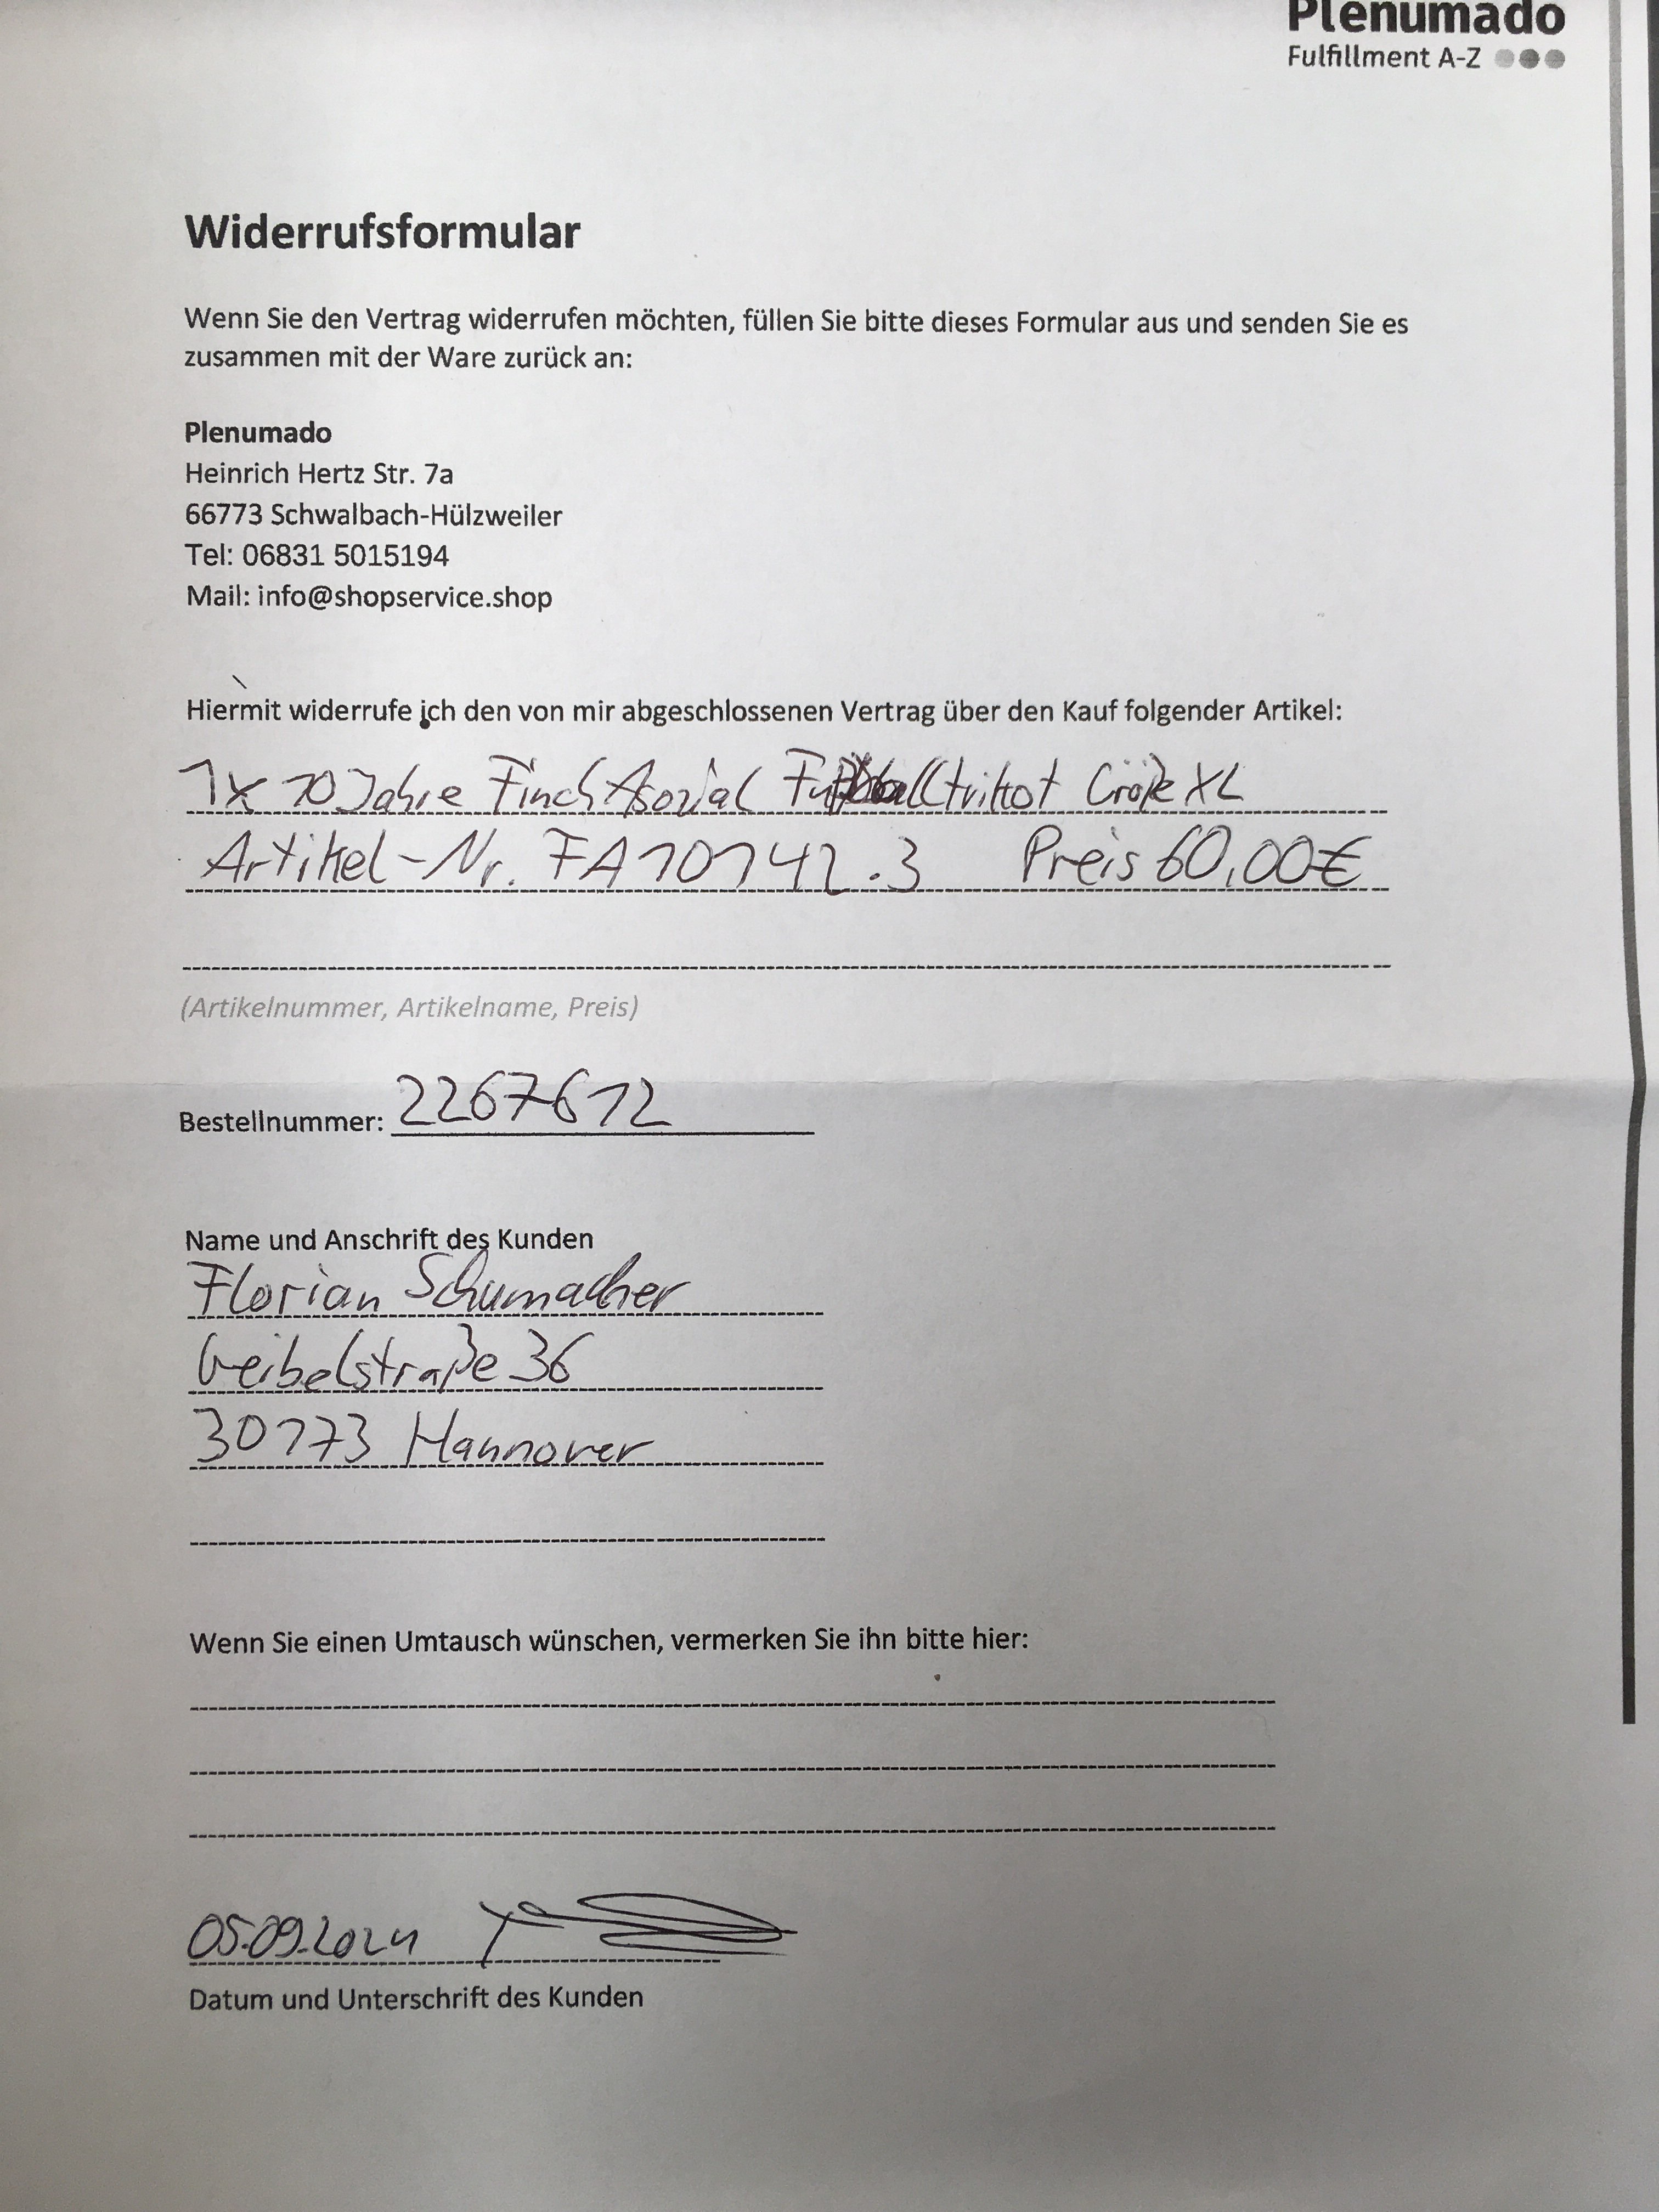 Plenumado
Fulfillment A-Z
Widerrufsformular
Wenn Sie den Vertrag widerrufen möchten, füllen Sie bitte dieses Formular aus und senden Sie es
zusammen mit der Ware zurück an:
Plenumado
Heinrich Hertz Str. 7a
66773 Schwalbach-Hülzweiler
Tel: 06831 5015194
Mail: info@shopservice.shop
Hiermit widerrufe ich den von mir abgeschlossenen Vertrag über den Kauf folgender Artikel:
1x 10 Jahre Finch Asozial Fußballtrikot Größe XL
Artikel-Nr. FA10142.3 Preis 60,00€
(Artikelnummer, Artikelname, Preis)
Bestellnummer: 2267612
Name und Anschrift des Kunden
Florian Schumacher
Geibelstraße 36
30173 Hannover
Wenn Sie einen Umtausch wünschen, vermerken Sie ihn bitte hier:
05.09.2024
Datum und Unterschrift des Kunden